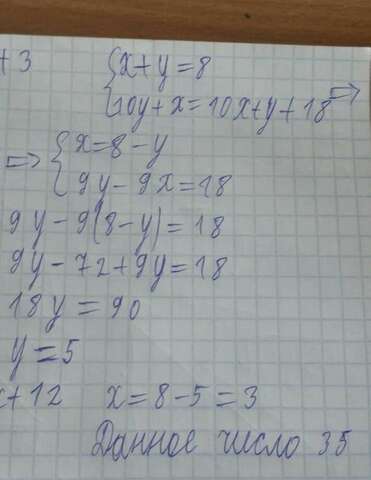 +3
{x+y=8
{10y+x=10x+y+18 ⇒
⇒ {x=8-y
{9y-9x=18
9y-9(8-y)=18
9y-72+9y=18
18y=90
y=5
x+12 x=8-5=3
Данное число 35